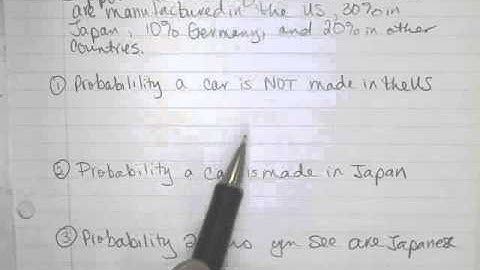 are manufactured in the US, 30% in
Japan, 10% Germany, and 20% in other
countries.
① Probablility a car is NOT made in the US
② Probability a car is made in Japan
③ Probability 2 you see are Japanese